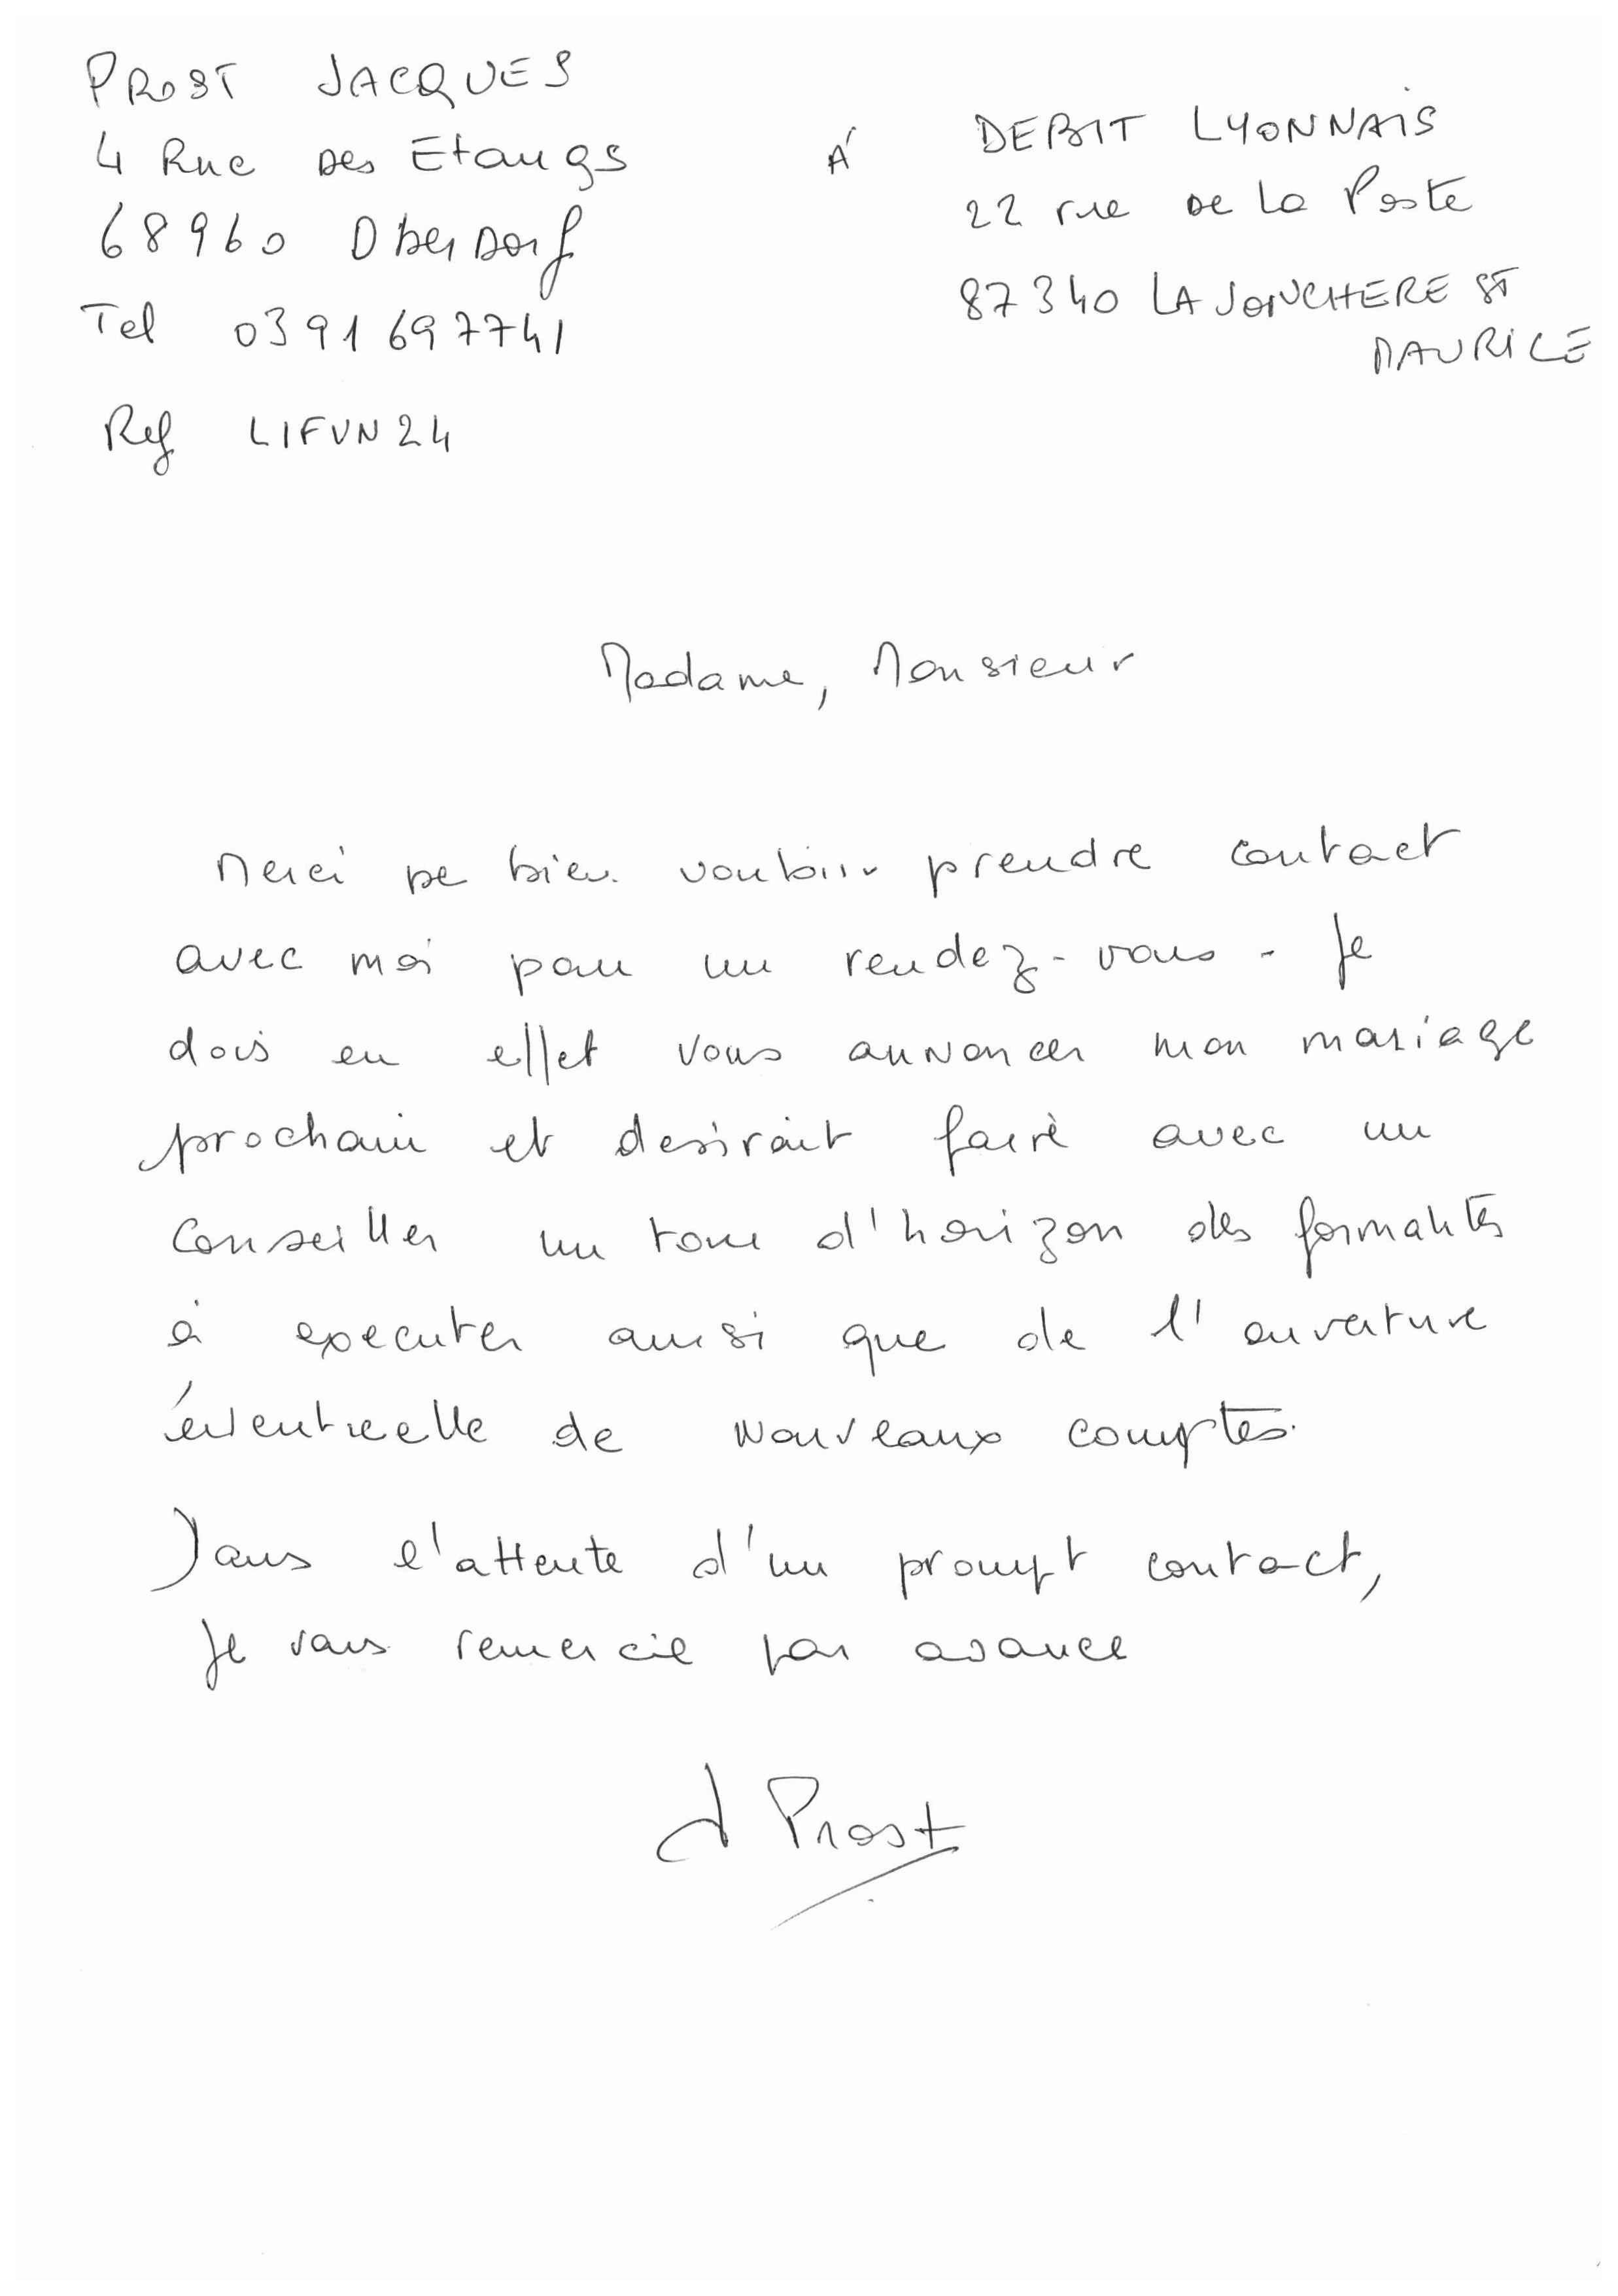 PROST JACQUES
4 Rue Des Etangs
68960 Oberdorf
Tel 0391697741
Ref LIFVN24
À
DEBIT LYONNAIS
22 rue De La Poste
87340 LA JONCHERE ST
MAURICE
Madame, Monsieur
Merci de bien vouloir prendre contact
avec moi pour un rendez-vous. Je
dois en effet vous annoncer mon mariage
prochain et desirait faire avec un
conseiller un tour d'horizon des formalités
à executer ainsi que de l'ouverture
éventuelle de nouveaux comptes.
Dans l'attente d'un prompt contact,
Je vous remercie par avance
J Prost